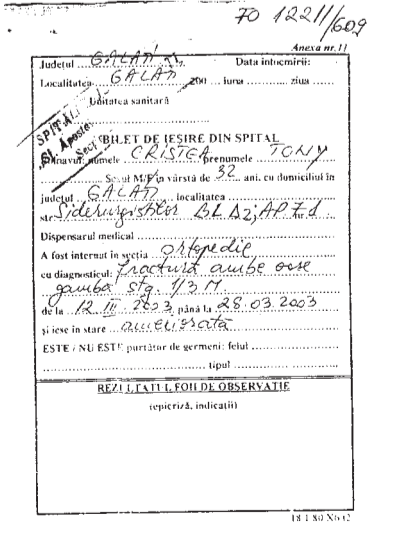 FO 12211/609
Anexa nr.11
Județul GALAȚI Data întocmirii:
Localitatea GALAȚI 200 luna ziua
Unitatea sanitară
SPITAL
"Sf. Apostol
Secț
BILET DE IEȘIRE DIN SPITAL
numele CRISTEA prenumele TONY
Sexul M/F în vârstă de 32 ani, cu domiciliul în
județul GALAȚI localitatea
str. Siderurgistilor BL Δ2; AP 7 nr. d
Dispensarul medical
A fost internat în secția ortopedie
cu diagnosticul: fractură ambe oase
gamba stg. 1/3 M.
de la 12 III 2003 până la 28.03.2003
și iese în stare ameliorată
ESTE / NU ESTE purtător de germeni: felul
tipul
REZULTATUL FOII DE OBSERVAȚIE
(epicriză, indicații)
18.1.80 X6 t2